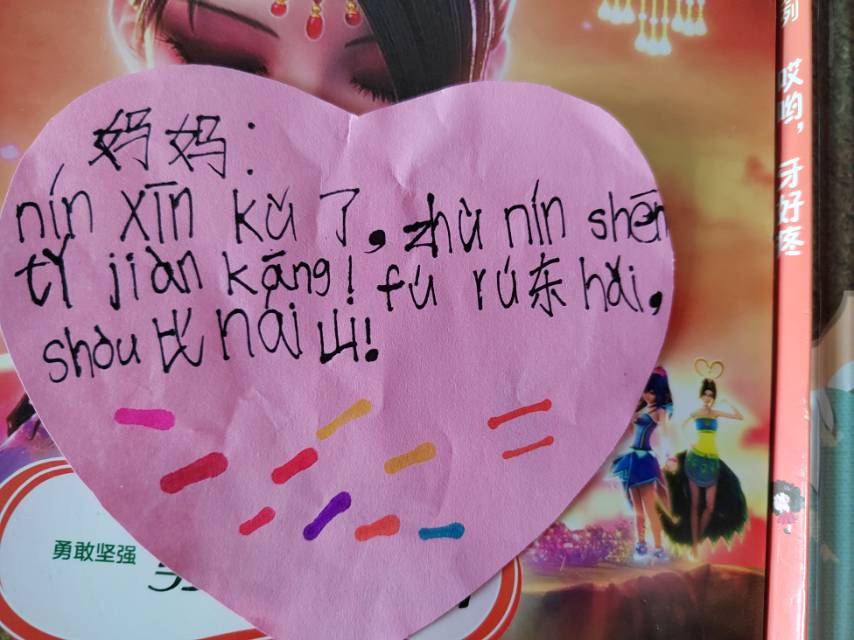 妈妈：
nín xīn kǔ 了，zhù nín shēn
tǐ jiàn kāng！fú rú东hǎi，
shòu比nán山！
勇敢坚强
列 哎哟，牙好疼